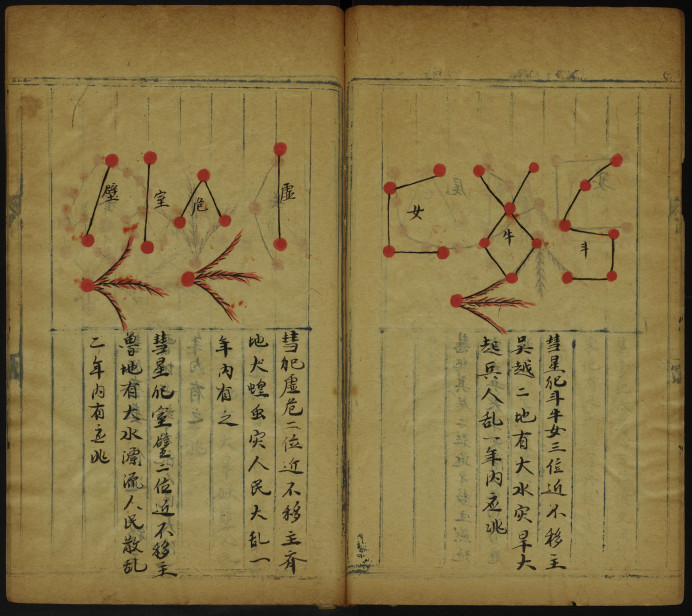 斗
牛
女
彗星犯斗牛女三位近不移主
吳越二地有大水灾旱大
起兵人乱一年内应兆
虛
危
室
壁
彗犯虛危二位近不移主齐
地犬蝗虫灾人民大乱一
年内有之
彗星犯室壁二位近不移主
魯地有大水漂流人民散乱
二年内有应兆